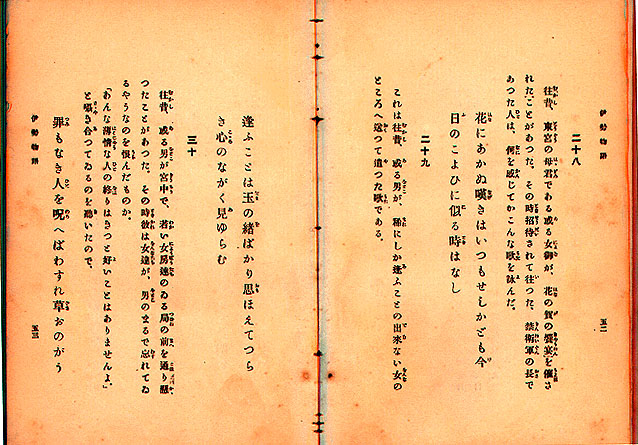 伊勢物語
五二
二十八
往昔、東宮の母君である或る女御が、花の賀の饗宴を催さ
れたことがあつた。その時招待されて往つた、禁衛軍の長で
あつた人は、何を感じてかこんな歌を詠んだ。
花にあかぬ嘆きはいつもせしかども今
日のこよひに似る時はなし
二十九
これは往昔、或る男が、稀にしか逢ふことの出來ない女の
ところへ送つて遣つた歌である。
逢ふことは玉の緒ばかり思ほえてつら
き心のながく見ゆらむ
三十
往昔、或る男が宮中で、若い女房達のゐる局の前を通り懸
つたことがあつた。その時彼は女達が、男のまるで忘れてゐ
るやうなのを恨んだものか。
「あんな薄情な人の終りはきつと好いことはありませんよ。」
と囁き合つてゐるのを聽いたので、
罪もなき人を呪へばわすれ草おのがう
伊勢物語
五三